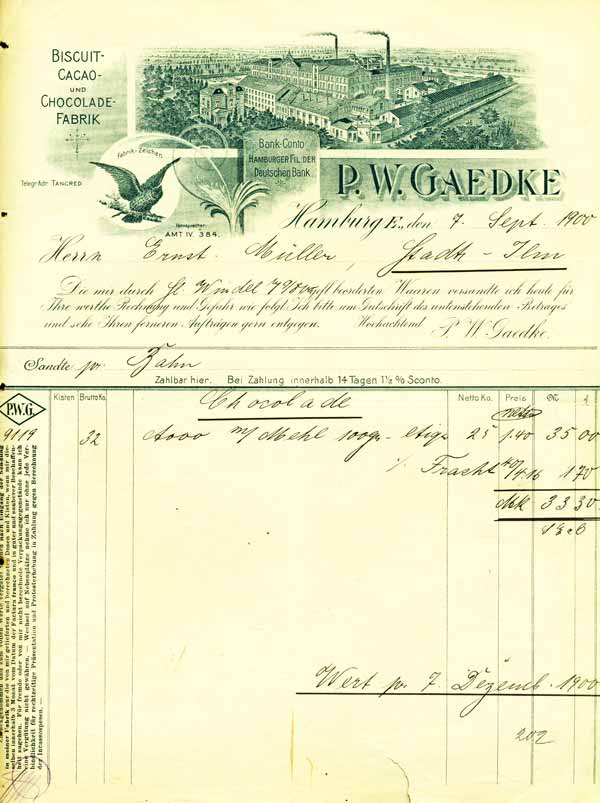 BISCUIT-
CACAO-
UND
CHOCOLADE-
FABRIK
Fabrik-Zeichen.
Telegr.-Adr. TANCRED
Fernsprecher:
AMT IV. 384.
Bank-Conto
HAMBURGER FIL. DER
Deutschen Bank.
P. W. GAEDKE
Hamburg E., den 7 Sept. 1900
Herrn Ernst Müller, Stadt-Ilm
Die mir durch beorderten Waaren versandte ich heute für
Ihre werthe Rechnung und Gefahr wie folgt. Ich bitte um Gutschrift des untenstehenden Betrages
und sehe Ihren ferneren Aufträgen gern entgegen. Hochachtend P. W. Gaedke.
Sandte pr. Bahn
Zahlbar hier. Bei Zahlung innerhalb 14 Tagen 1½ % Sconto.
P.W.G. Kisten Brutto Ko. Chocolade Netto Ko. Preis M
9119 32 m/Mehl 100gr 25 1.40 35 00
% Fracht 1 70
Mk 33.30
Wert pr. 7. Dezemb. 1900
202
in meiner Fabrik aus die von mir gelieferten und berechneten Dosen und Kisten, wenn mir die-
selben innerhalb 3 Monat vom Datum der Factura franco und in guter und sauberer Beschaffen-
heit zugehen. Für fremde oder von mir nicht berechnete Verpackungsgegenstände kann ich
eine Vergütung nicht gewähren. — Wechsel auf Nebenplätze nehme ich nur ohne jede Ver-
bindlichkeit für rechtzeitige Präsentation und Protesterhebung in Zahlung gegen Berechnung
der Incassospesen. —